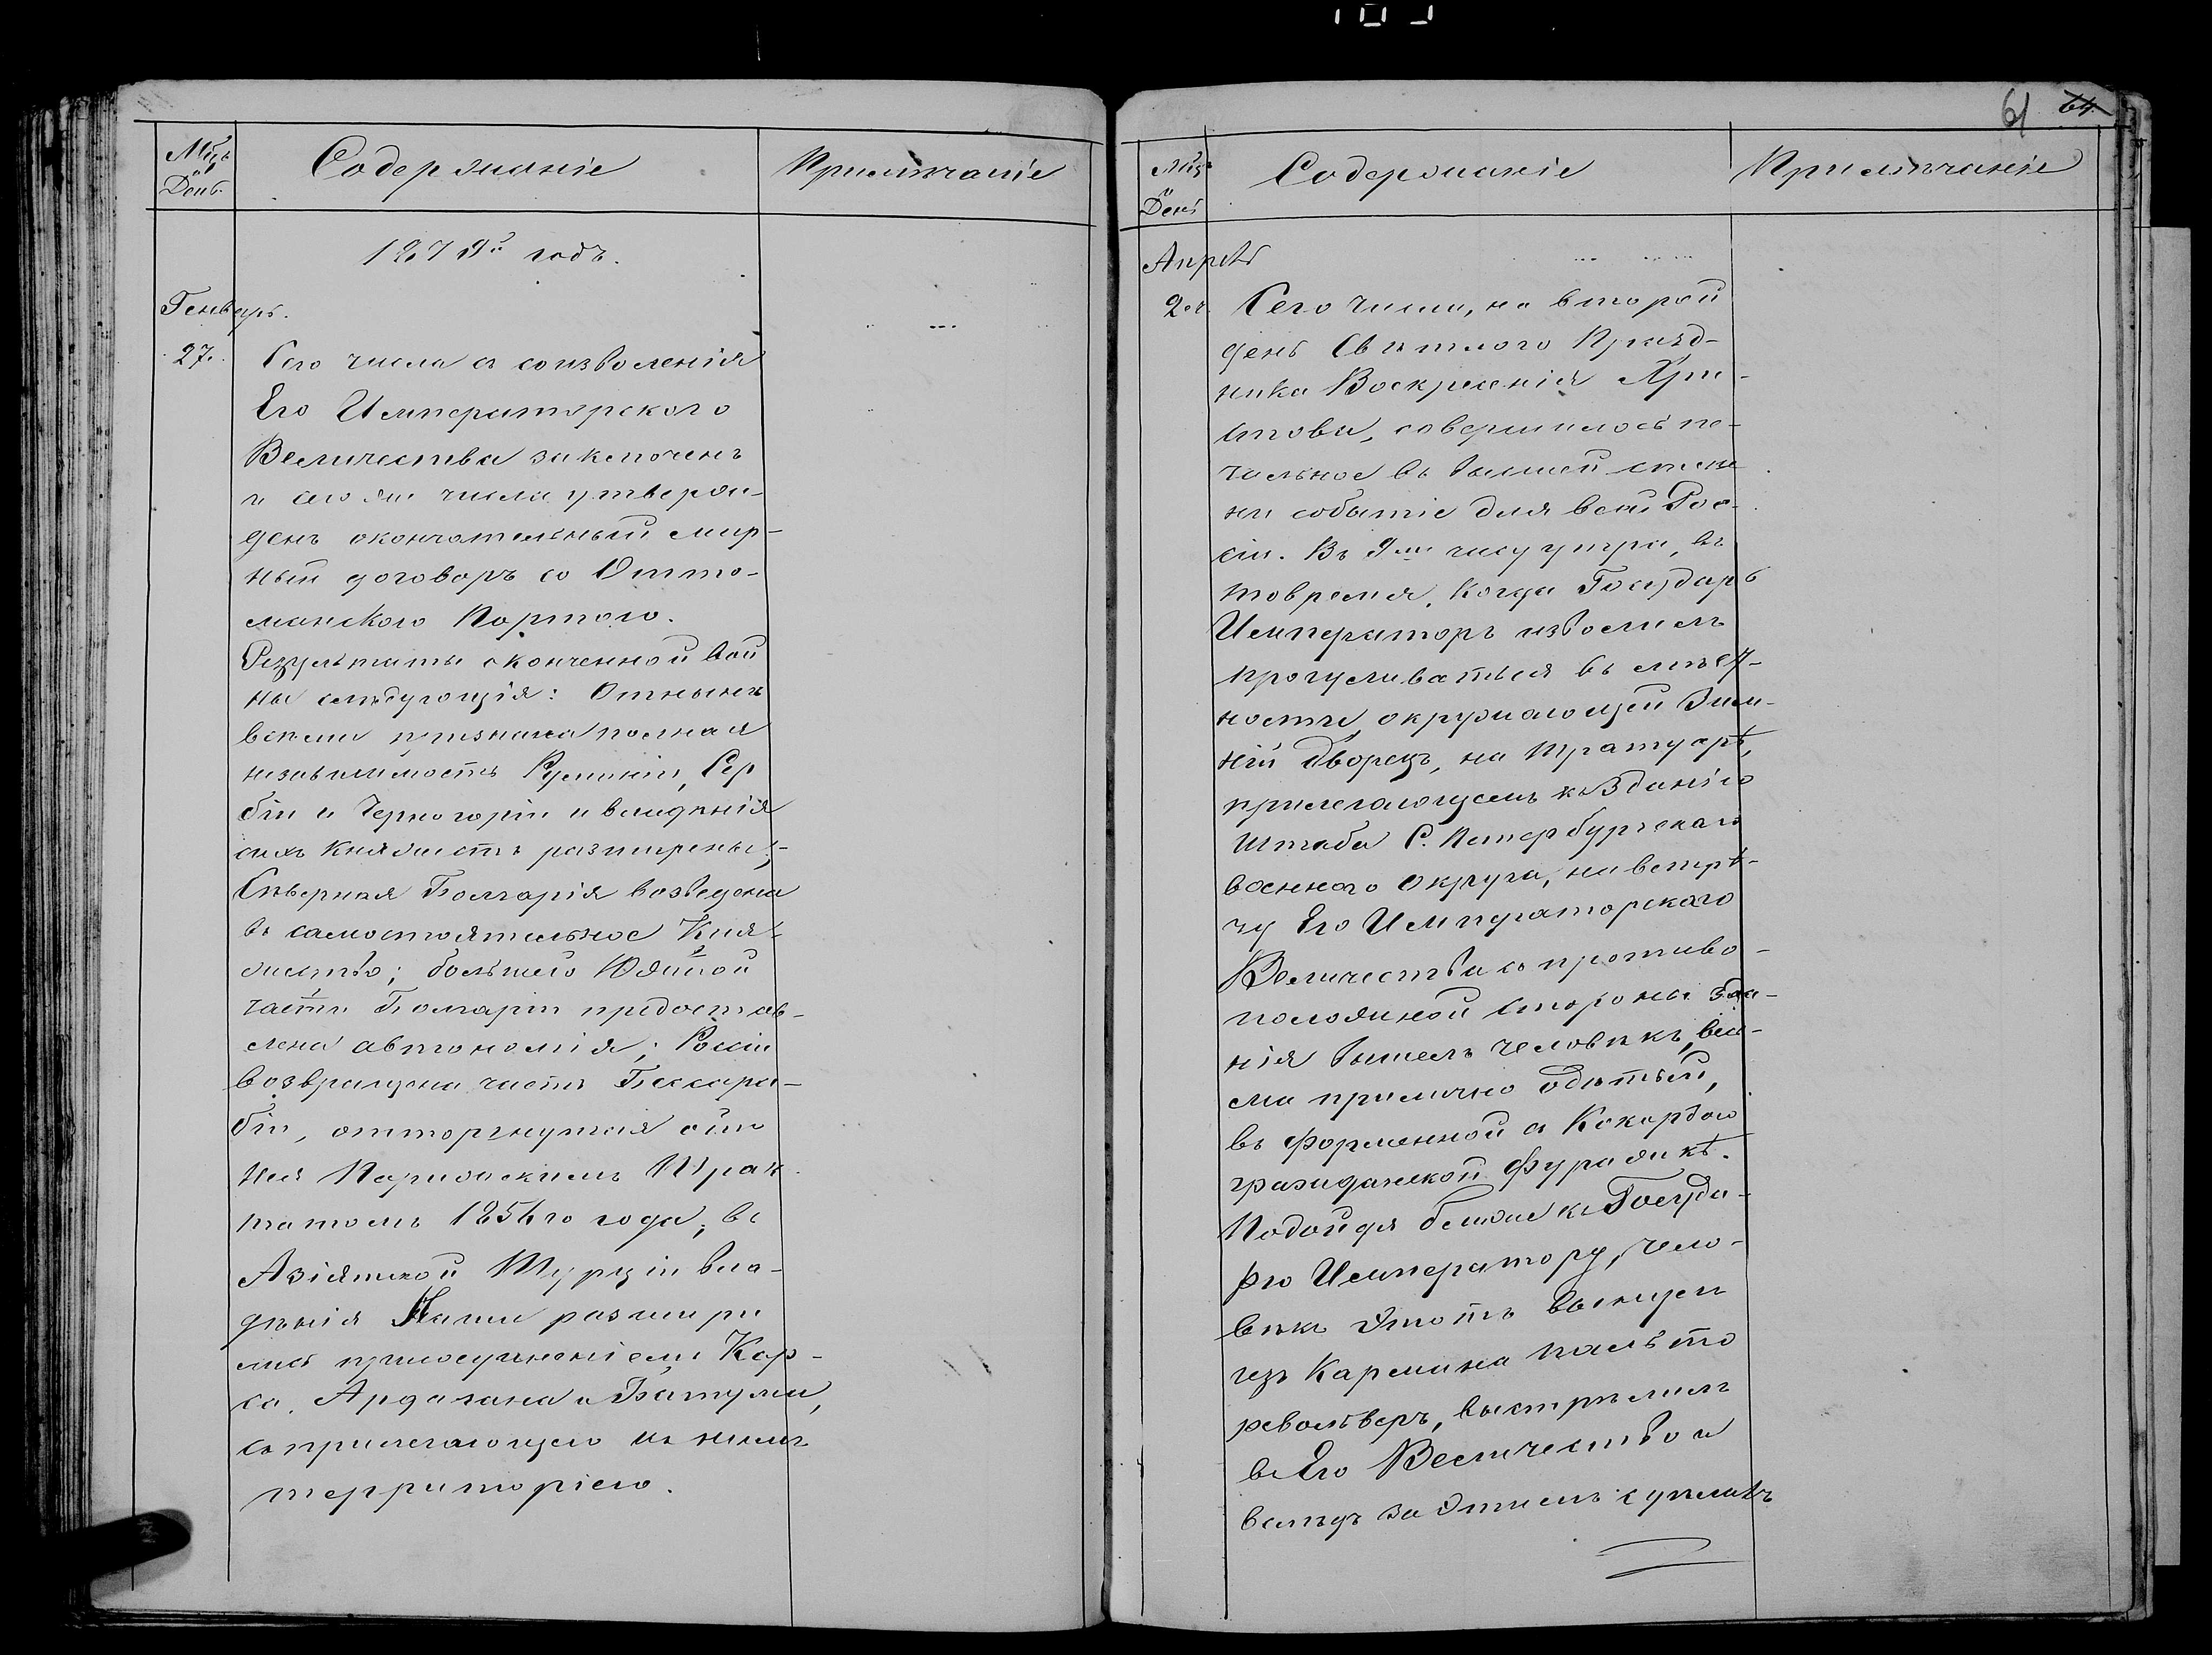 Мѣц.
День.
Содержаніе
Примѣчаніе
1879й годъ.
Генварь.
27.
Сего числа съ соизволенія
Его Императорскаго
Величества заключенъ
и сего же числа утверж-
денъ окончательный мир-
ный договоръ со Отто-
манскою Портою.
Результаты оконченной вой
ны слѣдующія: Отнынѣ
всѣми признана полная
независимость Румыніи, Сер
біи и Черногоріи и владѣнія
сихъ Княжествъ разширены;-
Сѣверная Болгарія возведена
въ самостоятельное Кня-
жество; большею Южной
части Болгаріи предостав-
лена автономія; Россіи
возвращена часть Бессара-
біи, отторгнутая отъ
Нея Парижскимъ Трак
татомъ 1856го года; въ
Азіятской Турціи вла-
дѣнія Наши разшири
лись присоединеніемъ Кар-
са, Ардагана и Батума,
съ прилегающею къ нимъ
территоріею.
61 64
Мѣц.
День
Содержаніе
Примѣчаніе
Апрѣль
2го.
Сего числа, на второй
день Свѣтлого Празд-
ника Воскресенія Хри-
стова, совершилось пе-
чальное въ высшей степе
ни событіе для всей Рос-
сіи. Въ 9мъ часу утра, въ
то время, когда Государь
Императоръ изволилъ
прогуливаться въ мѣст-
ности окружающей Зим-
ній Дворецъ, на тратуарѣ,
прилегающемъ къ Зданію
Штаба С. Петербургскаго
военнаго Округа, на встрѣ-
чу Его Императорскаго
Величества съ противо-
положной стороны зда-
нія вышелъ человѣкъ, вес-
ма прилично одѣтый,
въ форменной съ Кокардою
гражданской фуражкѣ.
Подойдя ближе къ Госуда-
рю Императору, чело-
вѣкъ этотъ вынулъ
изъ Кармана пальто
револьверъ, выстрѣлилъ
въ Его Величество и
вслѣдъ за этимъ сдѣлалъ